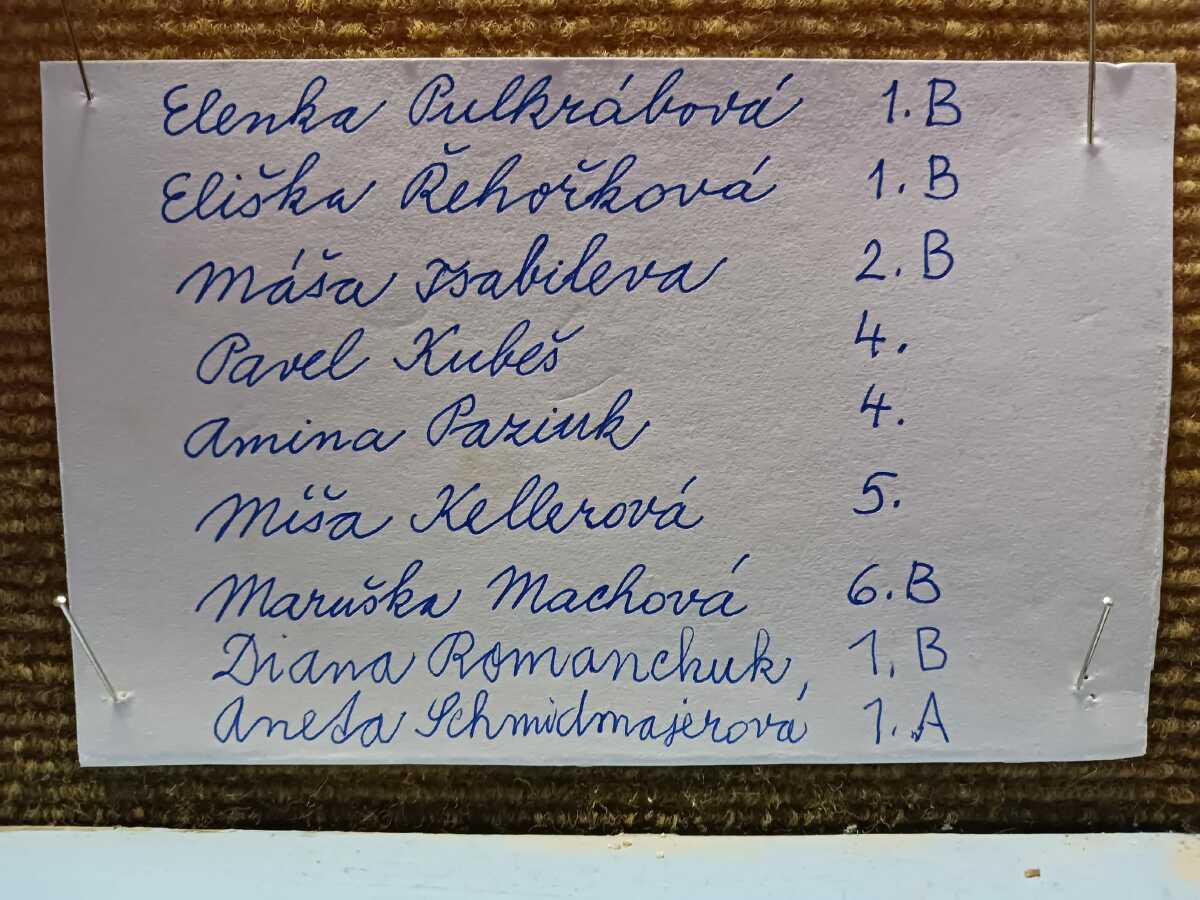 Elenka Pulkrábová 1.B
Eliška Řehořková 1.B
Máša Isabileva 2.B
Pavel Kubeš 4.
Amina Paziuk 4.
Míša Kellerová 5.
Maruška Machová 6.B
Diana Romanchuk, 1.B
Aneta Schmidmajerová 1.A